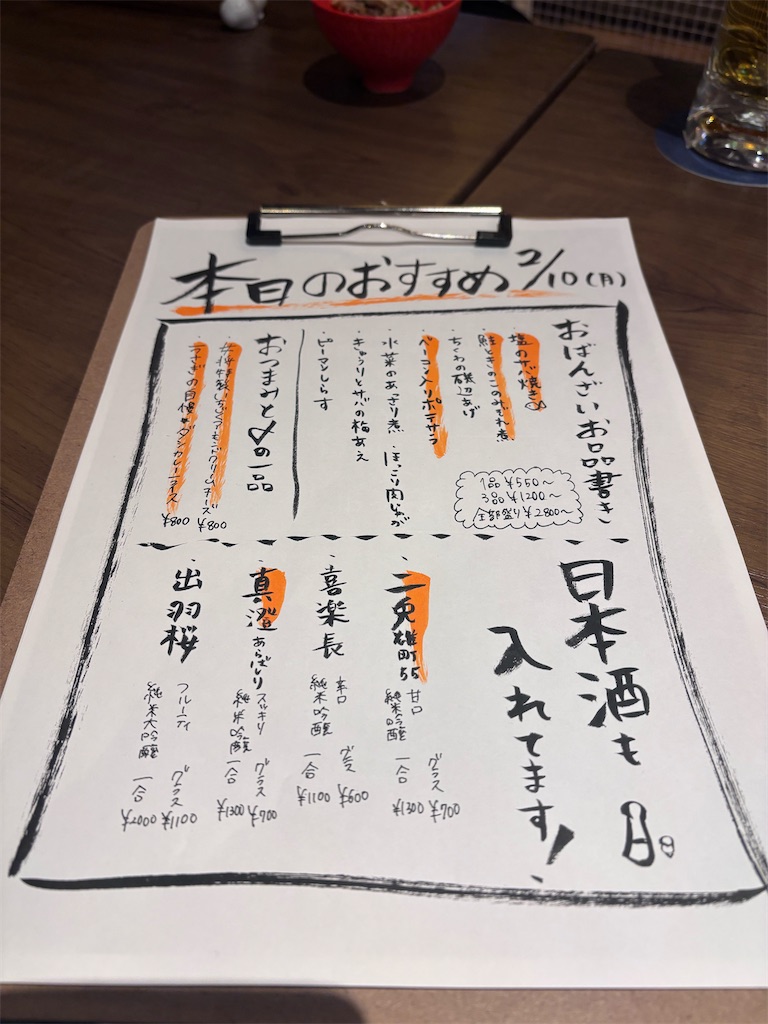 本日のおすすめ 2/10(月)
おばんざいお品書き
1品 ¥550〜
3品 ¥1200〜
全部盛り ¥2800〜
・塩サバ焼き
・鮭ときのこのみぞれ煮
・ちくわの磯辺あげ
・ベーコン入りポテサラ
・水菜のあっさり煮 ・ほっこり肉じゃが
・きゅうりとサバの梅あえ
・ピーマンしらす
おつまみと〆の一品
いちじくアーモンドクリームチーズ ¥800
カレーライス ¥800
日本酒も
入れてます!
・二兎 雄町55
甘口
純米吟醸
グラス ¥700
一合 ¥1300
・喜楽長
辛口
純米吟醸
グラス ¥600
一合 ¥1100
・真澄 あらばしり
スッキリ
純米吟醸
グラス ¥700
一合 ¥1300
・出羽桜
フルーティ
純米大吟醸
グラス ¥1100
一合 ¥2000